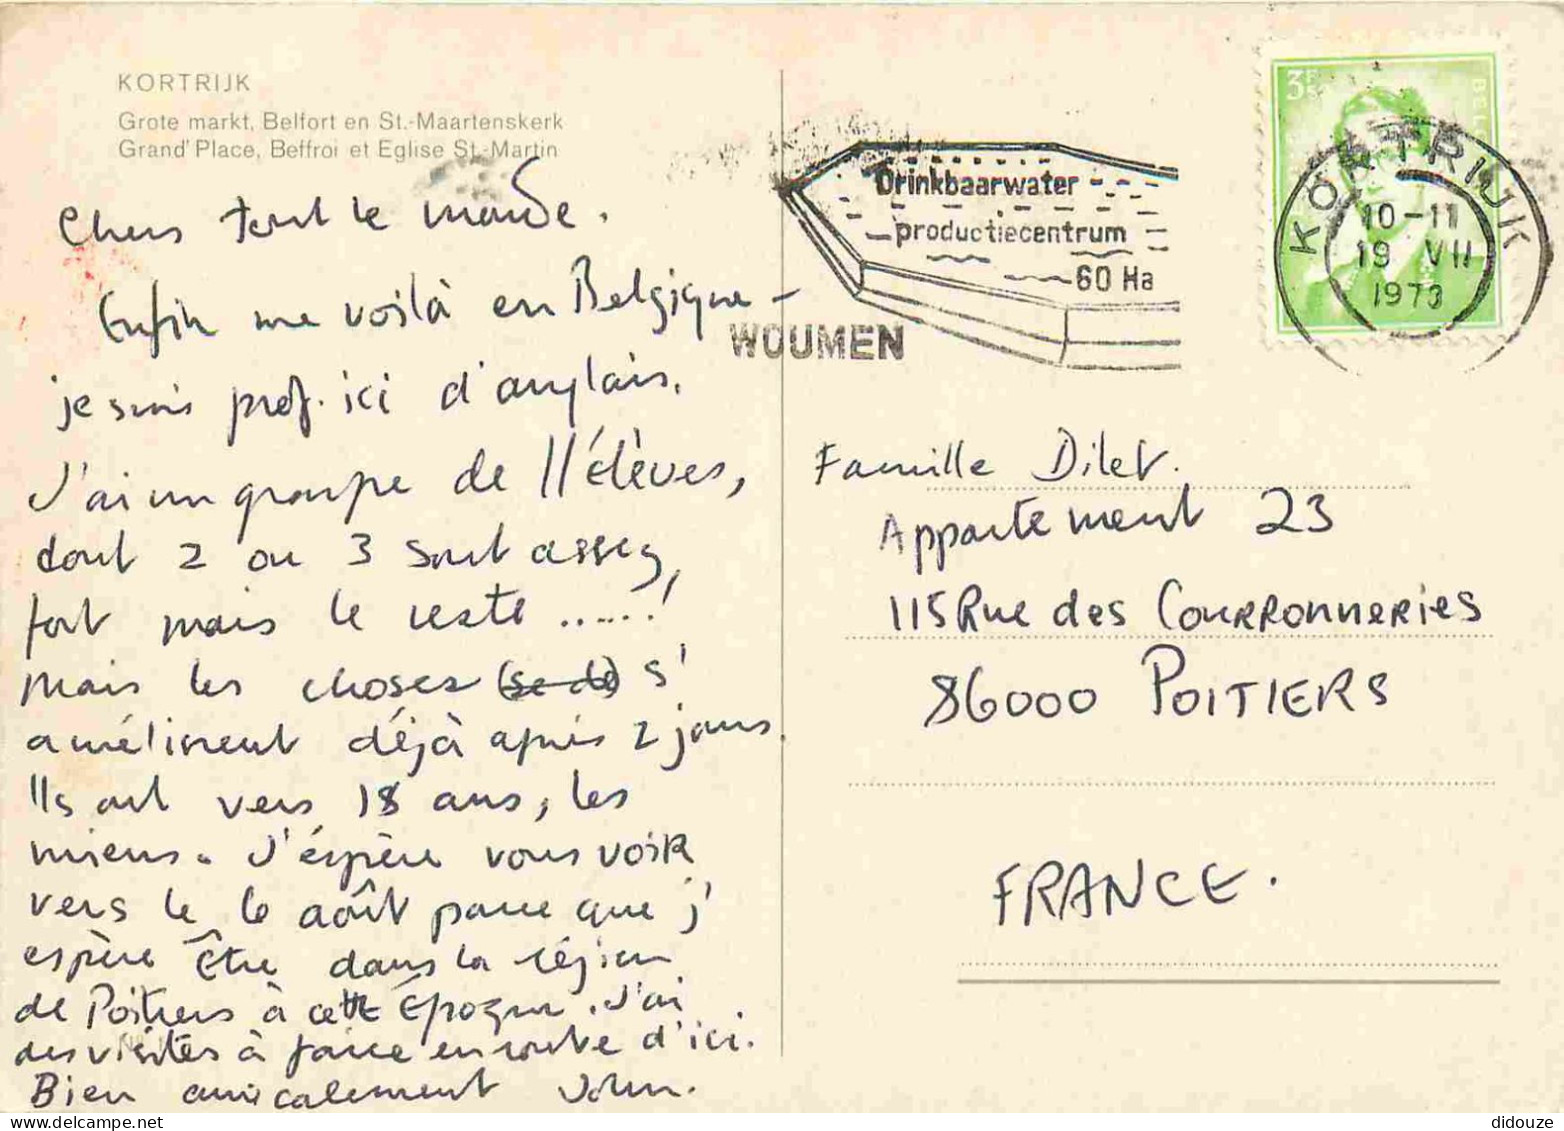 KORTRIJK
Grote markt, Belfort en St.-Maartenskerk
Grand'Place, Beffroi et Eglise St.-Martin
Chers tout le monde.
Enfin me voilà en Belgique -
je suis prof. ici d'anglais.
J'ai un groupe de 11 élèves,
dont 2 ou 3 sont assez
fort mais le reste ......!
mais les choses (se de) s'
améliorent déjà après 2 jours.
Ils ont vers 18 ans, les
miens. J'espère vous voir
vers le 6 août parce que j'
espère être dans la région
de Poitiers à cette Époque. J'ai
des visites à faire en route d'ici.
Bien amicalement John.
Drinkbaarwater
productiecentrum
60 Ha
WOUMEN
3F
BELG
KORTRIJK
10-11
19 VII
1973
Famille Dilet.
Appartement 23
115 Rue des Courronneries
86000 POITIERS
FRANCE.
didouze